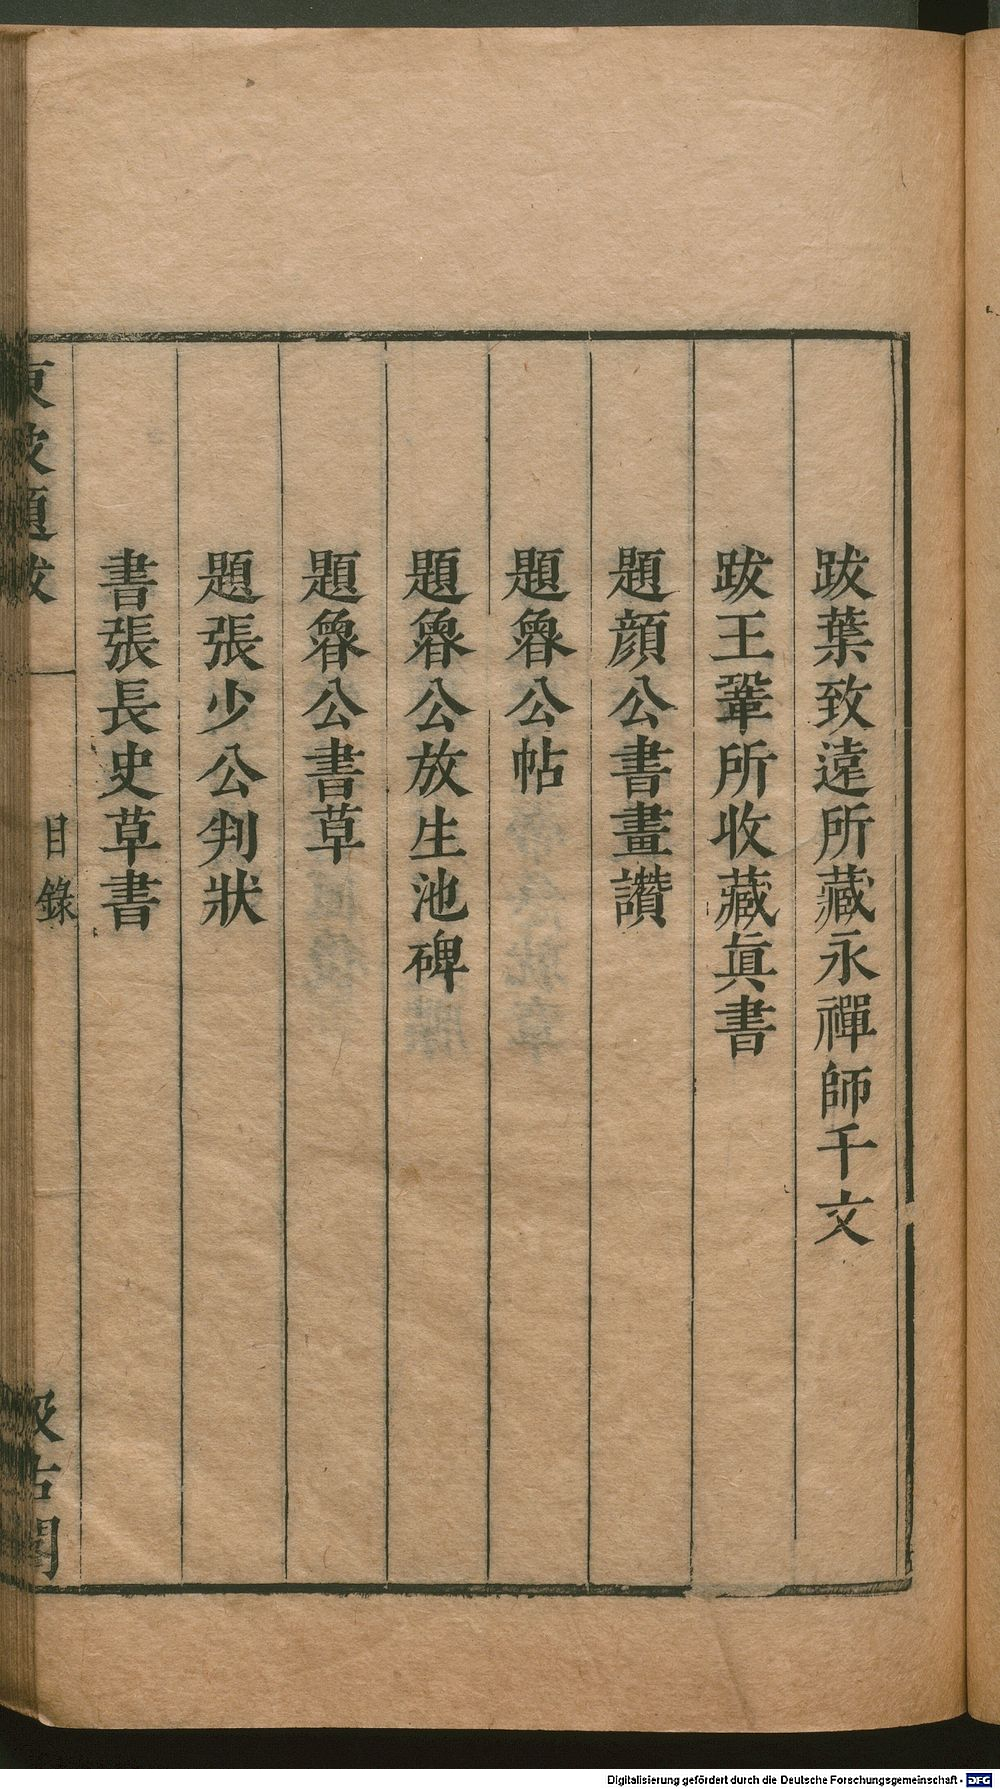 跋葉致遠所藏永禪師千文
跋王鞏所收藏眞書
題顔公書畫讚
題魯公帖
題魯公放生池碑
題魯公書草
題張少公判狀
書張長史草書
東坡題跋
目錄
汲古閣
Digitalisierung gefördert durch die Deutsche Forschungsgemeinschaft - DFG